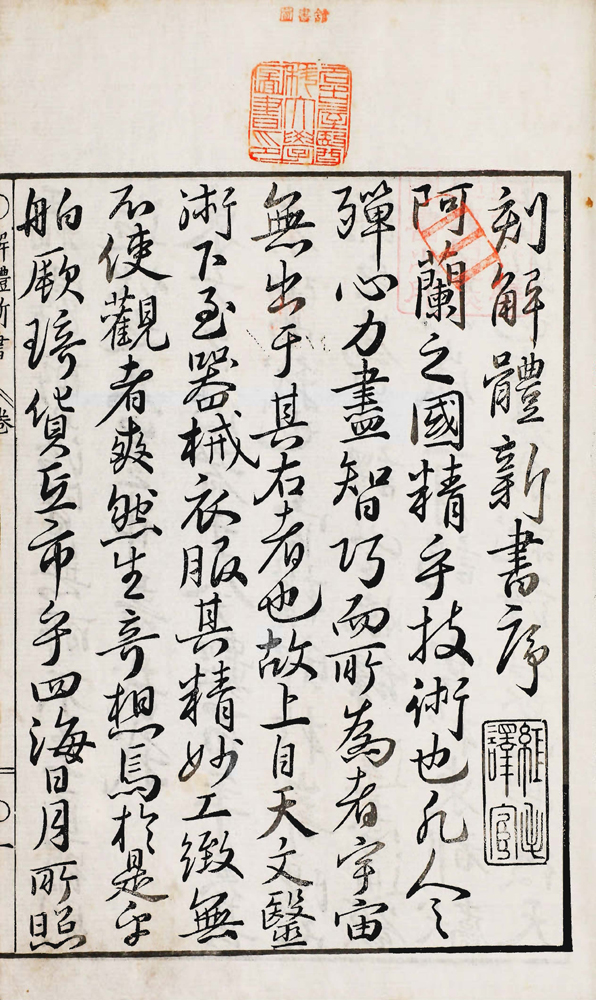 圖書舘
刻解體新書序
譯官
阿蘭之國精乎技術也凡人之
殫心力盡智巧而所為者宇宙
無出于其右者也故上自天文醫
術下至器械衣服其精妙工緻無
不使觀者爽然生奇想焉於是乎
舶厥琦貨互市乎四海日月所照
解體新書 卷